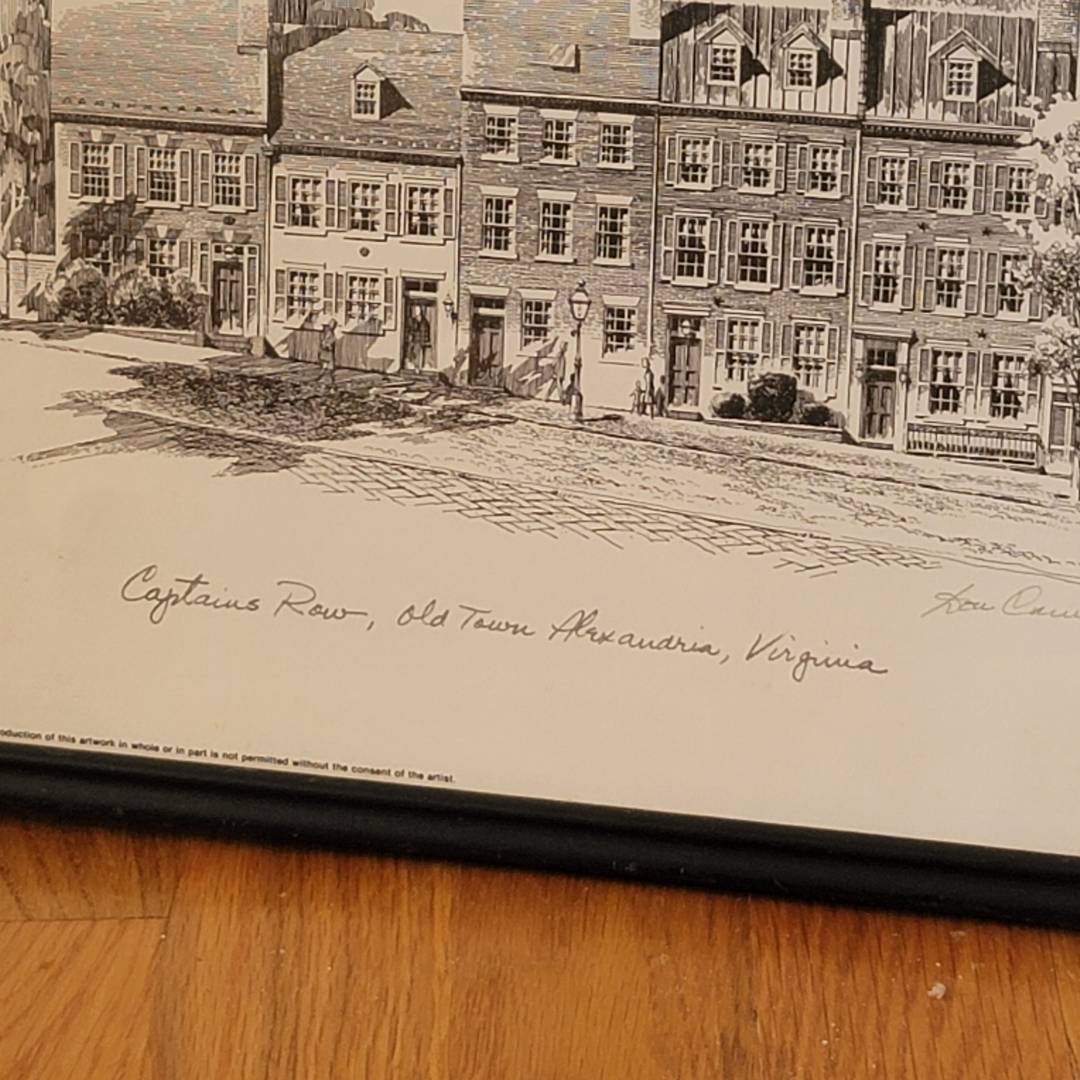 Captains Row, Old Town Alexandria, Virginia
Don
oduction of this artwork in whole or in part is not permitted without the consent of the artist.